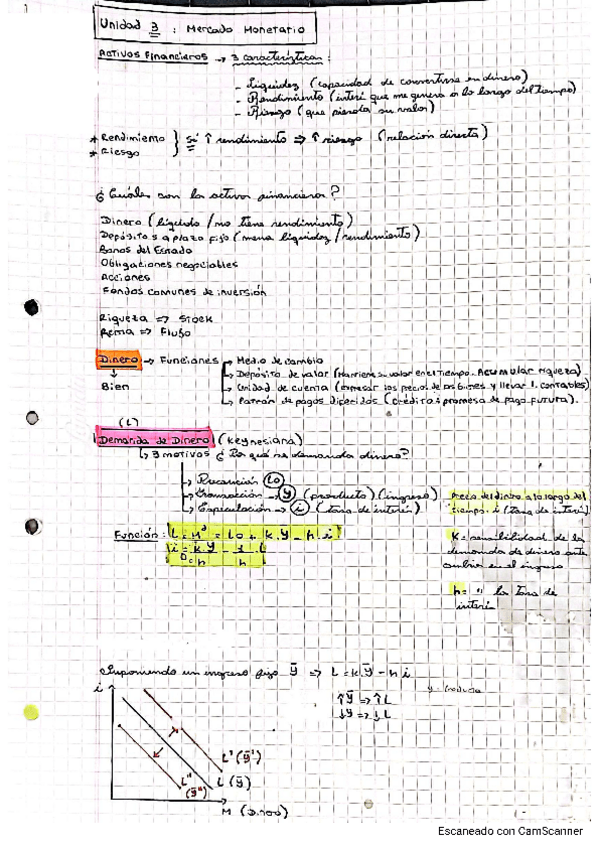 1
Unidad 3 : Mercado Monetario
Activos Financieros → 3 características :
- Liquidez (capacidad de convertirse en dinero)
- Rendimiento (interés que me genera a lo largo del tiempo)
- Riesgo (que pierda su valor)
* Rendimiento
* Riesgo
} si ↑ rendimiento ⇒ ↑ riesgo (relación directa)
¿Cuáles son los activos financieros?
Dinero (líquido / no tiene rendimiento)
Depósitos a plazo fijo (menos liquidez / rendimiento)
Bonos del Estado
Obligaciones negociables
Acciones
Fondos comunes de inversión
Riqueza => Stock
Renta => Flujo
Dinero → Funciones
Medio de cambio
Depósito de valor (Mantiene su valor en el tiempo. Acumular riqueza)
Unidad de cuenta (expresar los precios de los bienes y llevar l. contables)
Patrón de pagos diferidos (Crédito: promesa de pago futura).
↓
Bien
(L)
Demanda de Dinero (Keynesiana)
↳ 3 motivos ¿Por qué se demanda dinero?
Precaución (L0)
Transacción → (Y) (producto) (ingreso)
Especulación → (i) (tasa de interés)
Precio del dinero a lo largo del
tiempo. i (tasa de interés)
Función: L = M^d = L0 + k.Y - h.i
K = sensibilidad de la
demanda de dinero ante
cambio en el ingreso
h = " la tasa de
interés
Suponiendo un ingreso fijo Ȳ => L = k.Ȳ - h i
↑Ȳ => ↑L
↓Y => ↓L
i
L' (Ȳ')
L (Ȳ)
L''
(Ȳ'')
Escaneado con CamScanner